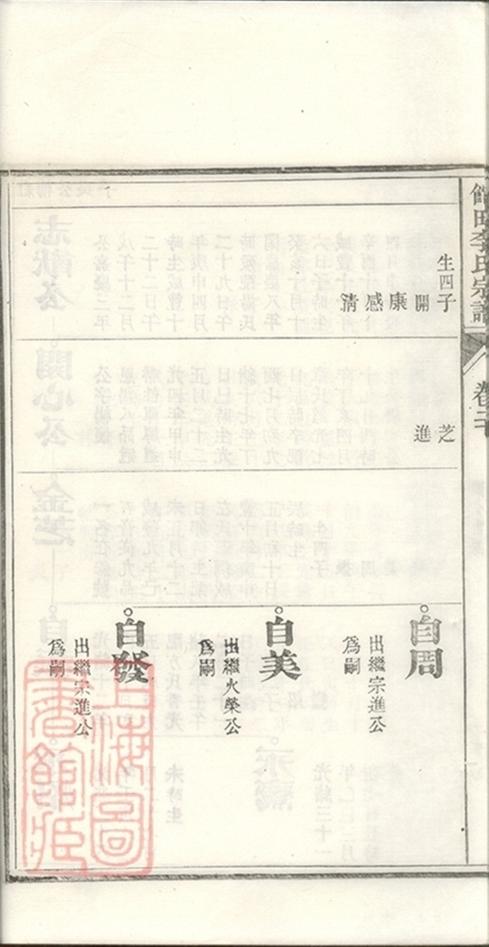 田李氏宗譜
卷
生四子
開
康
感
清
芝
進
自周
出繼宗進公
爲嗣
自美
出繼火榮公
爲嗣
自發
出繼宗進公
爲嗣
上海圖
書館藏